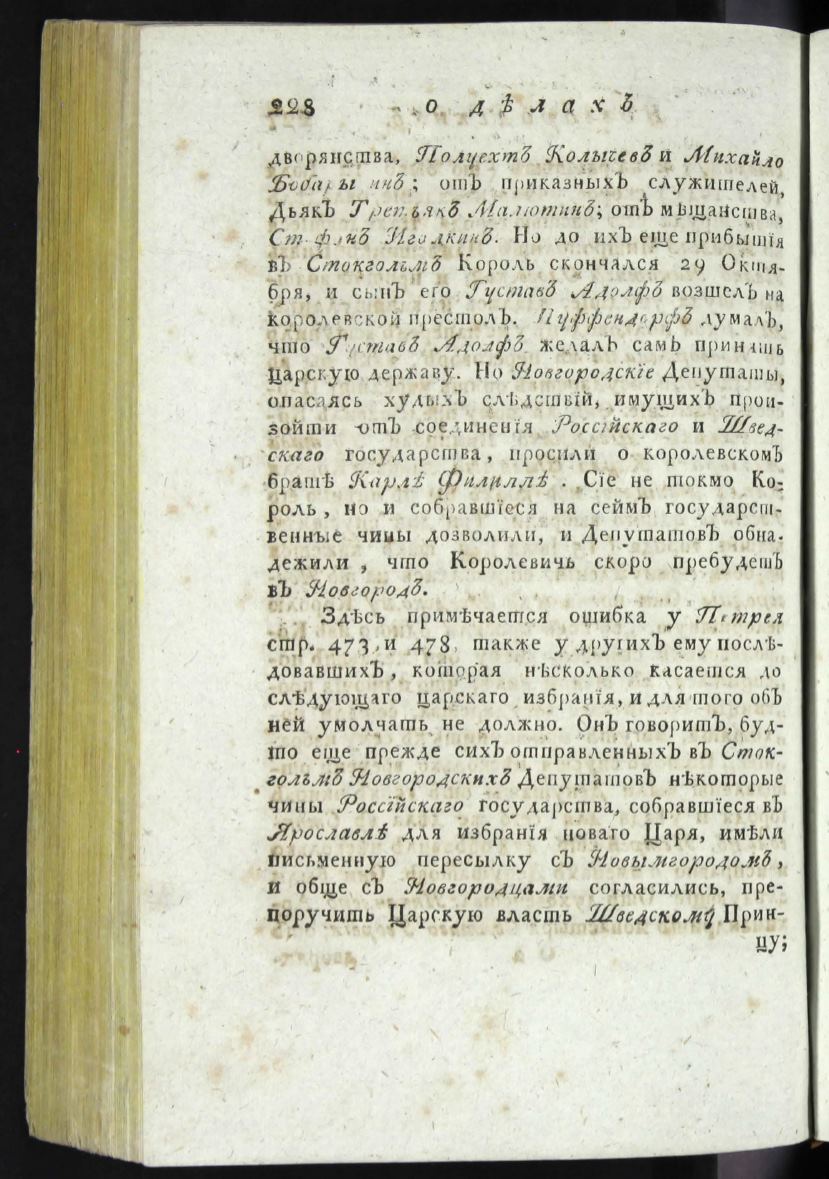 228 о дѣлахъ
дворянства, Полуехтъ Колычевъ и Михайло
Бобарыкинъ; отъ приказныхъ служителей,
Дьякъ Третьякъ Малютинъ; отъ мѣщанства,
Стефанъ Иголкинъ. Но до ихъ еще прибытїя
въ Стокгольмъ Король скончался 29 Октя-
бря, и сынъ его Густавъ Адолфъ возшелъ на
королевской престолъ. Пуффендорфъ думалъ,
что Густавъ Адолфъ желалъ самъ принять
царскую державу. Но Новгородскїе Депутаты,
опасаясь худыхъ слѣдствїй, имущихъ прои-
зойти отъ соединенїя Россїйскаго и Швед-
скаго государства, просили о королевскомъ
братѣ Карлѣ Филиппѣ. Сїе не токмо Ко-
роль, но и собравшїеся на сеймъ государст-
венные чины дозволили, и Депутатовъ обна-
дежили, что Королевичь скоро пребудетъ
въ Новгородъ.
Здѣсь примѣчается ошибка у Петрея
стр. 473 и 478, также у другихъ ему послѣ-
довавшихъ, которая нѣсколько касается до
слѣдующаго царскаго избранїя, и для того объ
ней умолчать не должно. Онъ говоритъ, буд-
то еще прежде сихъ отправленныхъ въ Сток-
гольмъ Новгородскихъ Депутатовъ нѣкоторые
чины Россїйскаго государства, собравшїеся въ
Ярославлѣ для избранїя новаго Царя, имѣли
письменную пересылку съ Новымгородомъ,
и обще съ Новгородцами согласились, пре-
поручить Царскую власть Шведскому Прин-
цу;